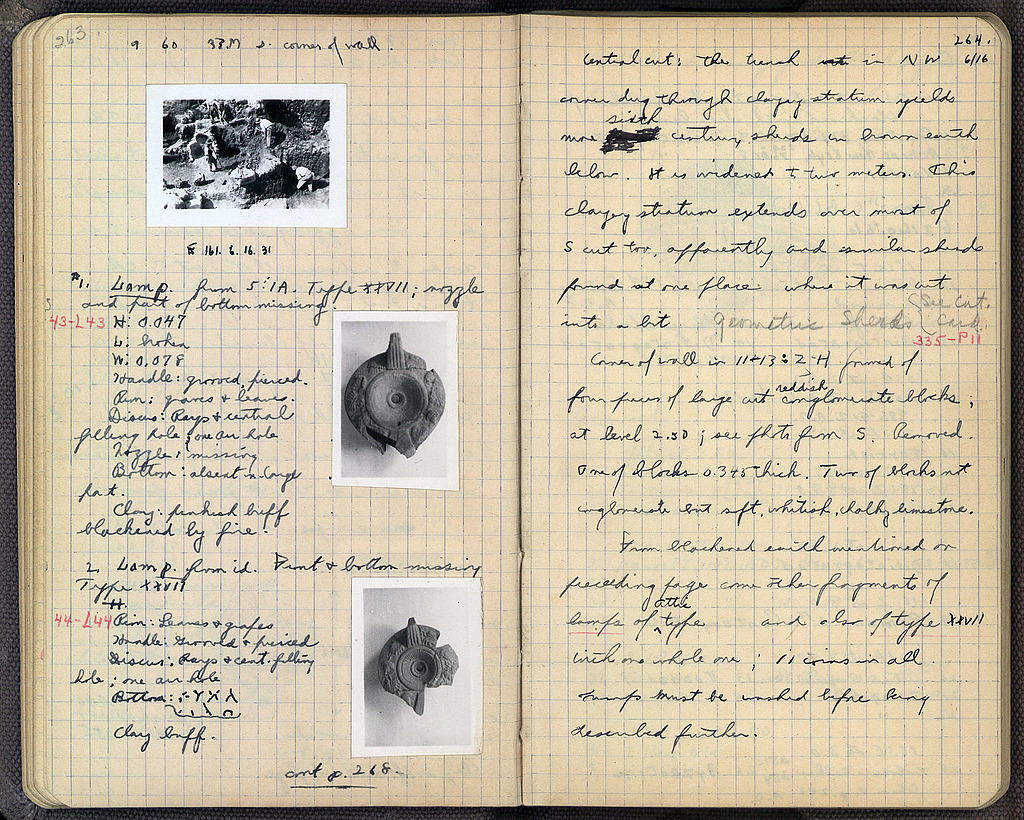 263
9 60 33M S. corner of wall.
161. 6. 16. 31
*1. Lamp. from 5:1A. Type XXVII; nozzle
and part of bottom missing
43-L43 H: 0.047
L: broken
W: 0.078
Handle: grooved, pierced.
Rim: grapes & leaves.
Discus: Rays & central
filling hole; one air hole
Nozzle: missing
Bottom: absent in large
part.
Clay: pinkish buff
blackened by fire.
2. Lamp. from id. Front & bottom missing
Type XXVII
H.
44-L44 Rim: Leaves & grapes
Handle: Grooved & pierced
Discus: Rays & cent. filling
hole; one air hole
Bottom:
Clay buff.
cont p. 268.
264.
Central cut: The trench in NW 6/16
corner dug through clayey stratum yields
more sixth century sherds in brown earth
below. It is widened to two meters. This
clayey stratum extends over most of
S cut too, apparently and similar sherds
found at one place where it was cut
into a bit. Geometric Sherds { See Cat. Card.
335-P11
Corner of wall in 11-13:Z-H formed of
four pieces of large cut reddish conglomerate blocks,
at level 2.50; see photo from S. Removed.
One of blocks 0.345 thick. Two of blocks not
conglomerate but soft, whitish, chalky limestone.
From blackened earth mentioned on
preceding page come other fragments of
lamps of attic type and also of type XXVII
with one whole one; 11 coins in all.
Lamps must be washed before being
described further.